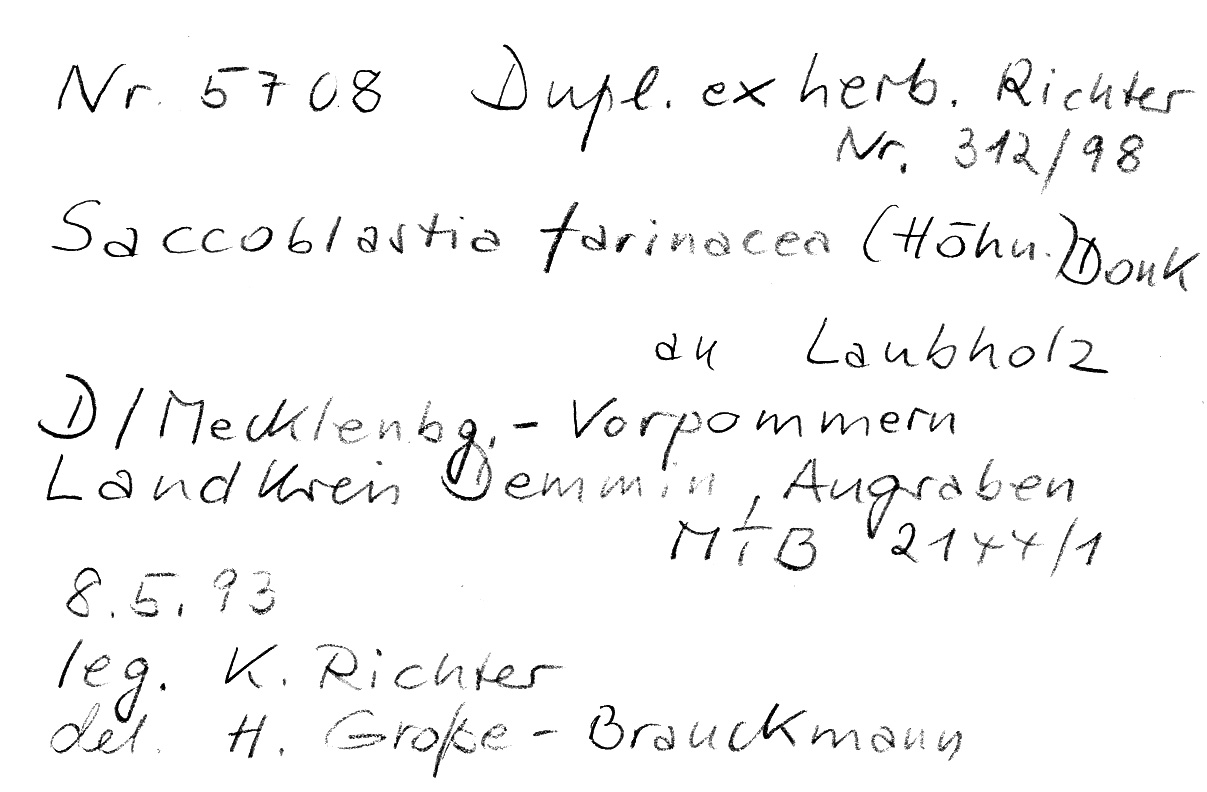 Nr. 5708 Dupl. ex herb. Richter
Nr. 312/98
Saccoblastia farinacea (Höhn.) Donk
an Laubholz
D/Mecklenbg.-Vorpommern
Landkreis Demmin, Augraben
MTB 2144/1
8.5.93
leg. K. Richter
det. H. Große-Brauckmann